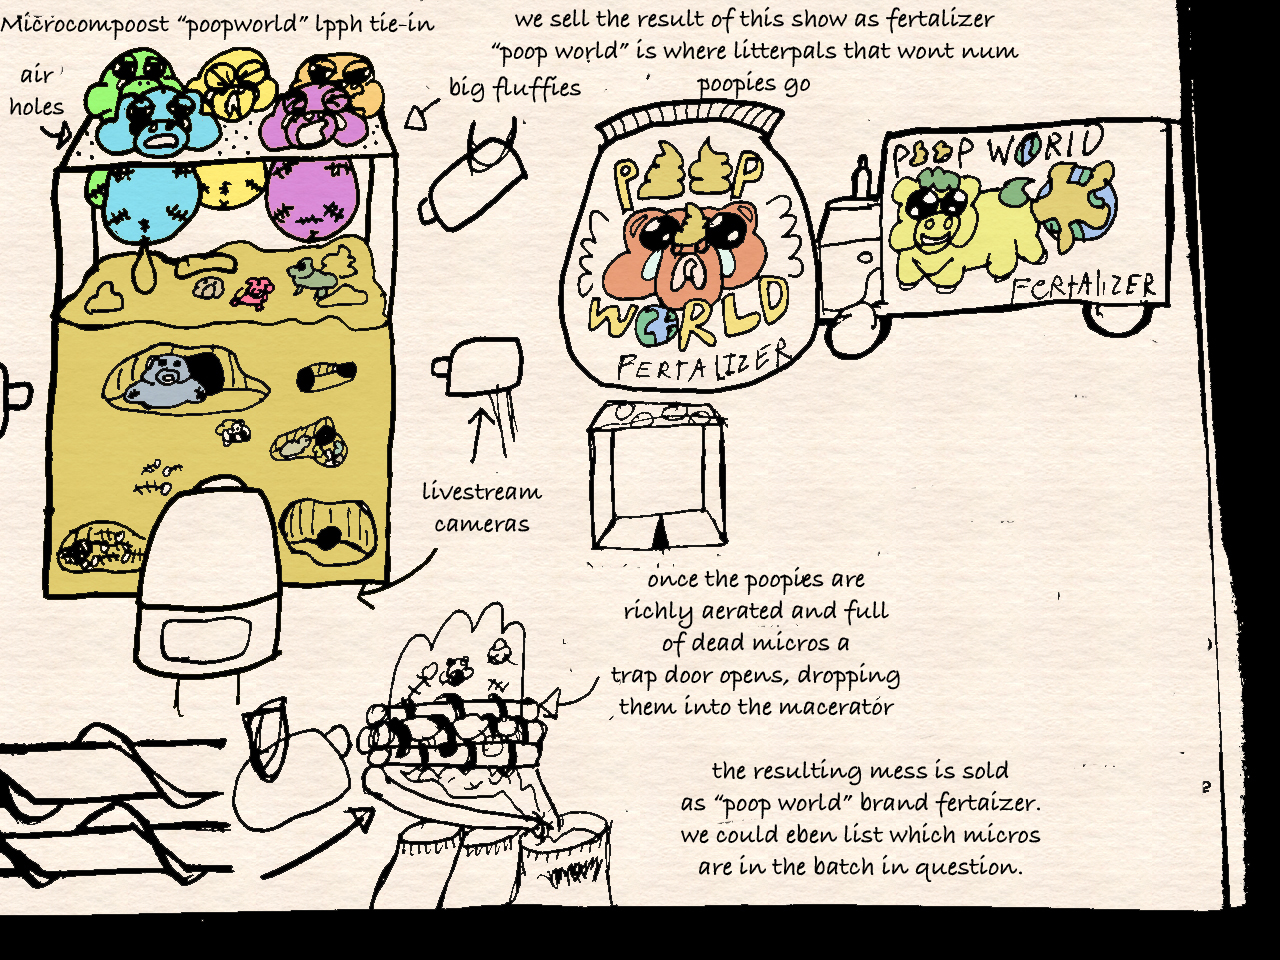 Microcompoost “poopworld” lpph tie-in
we sell the result of this show as fertalizer
“poop world” is where litterpals that wont num
poopies go
air
holes
big fluffies
POOP
WORLD
FERTALIZER
POOP WORLD
FERTALIZER
livestream
cameras
once the poopies are
richly aerated and full
of dead micros a
trap door opens, dropping
them into the macerator
the resulting mess is sold
as “poop world” brand fertaizer.
we could eben list which micros
are in the batch in question.